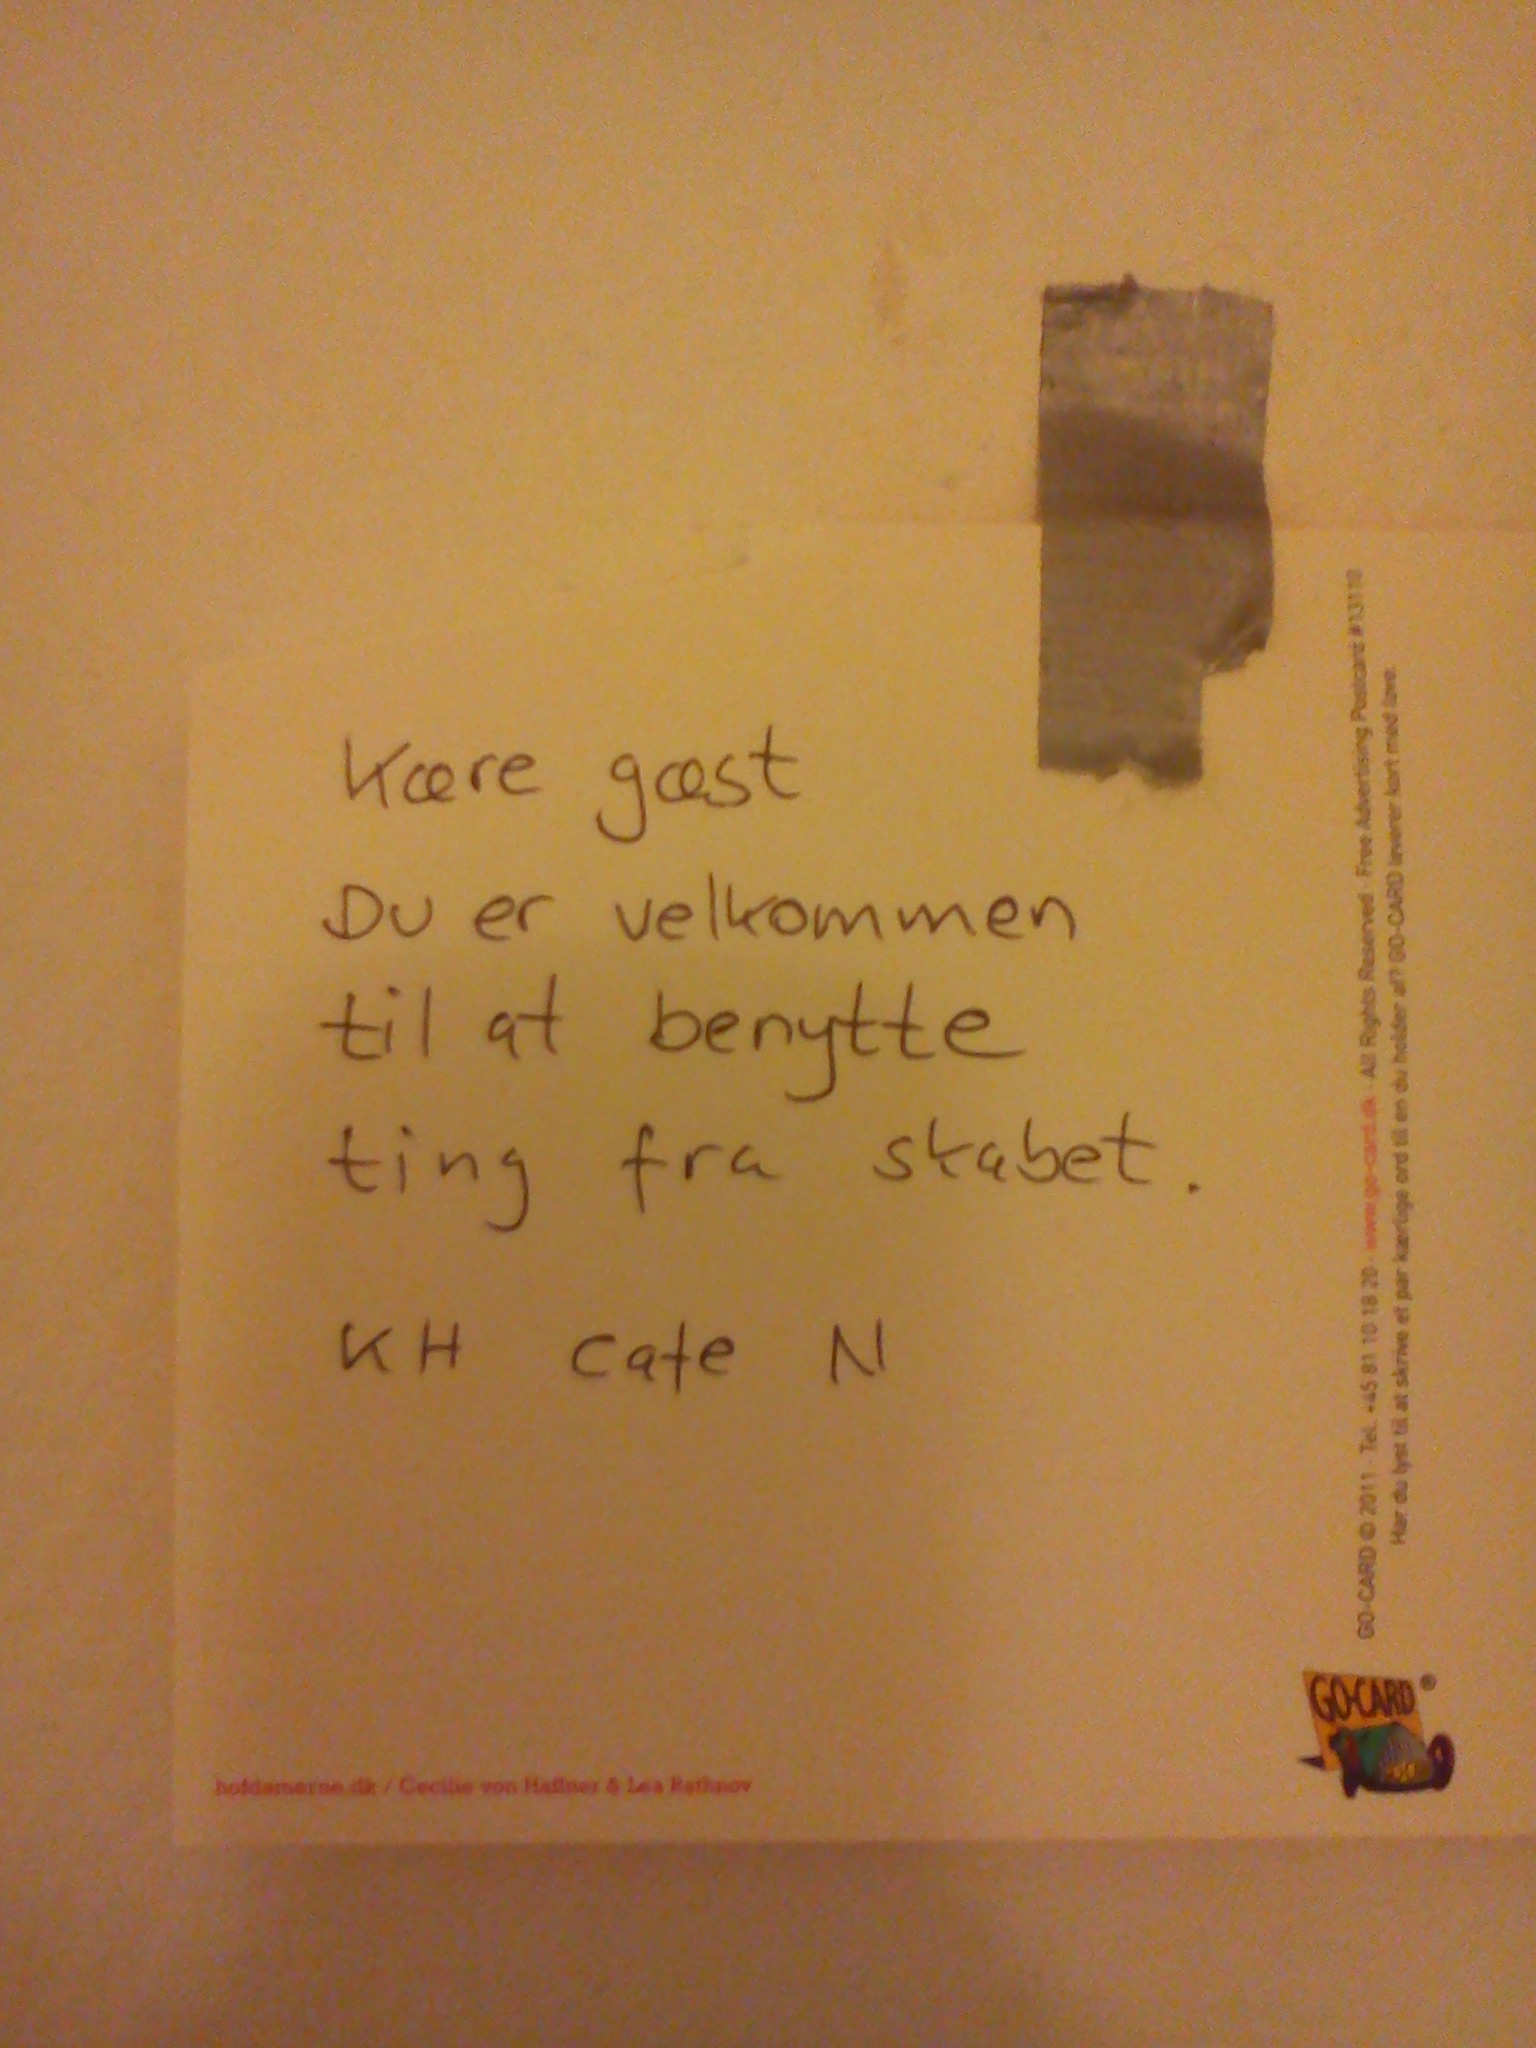 Kære gæst
Du er velkommen
til at benytte
ting fra skabet.
KH Cafe N
hofdamerne.dk / Cecilie von Haffner & Lea Rathnov
GO-CARD © 2011 · Tel. +45 81 10 18 20 · www.go-card.dk · All Rights Reserved · Free Advertising Postcard #13110
Har du lyst til at skrive et par kærlige ord til en du holder af? GO-CARD leverer kort med love.
GO-CARD ®